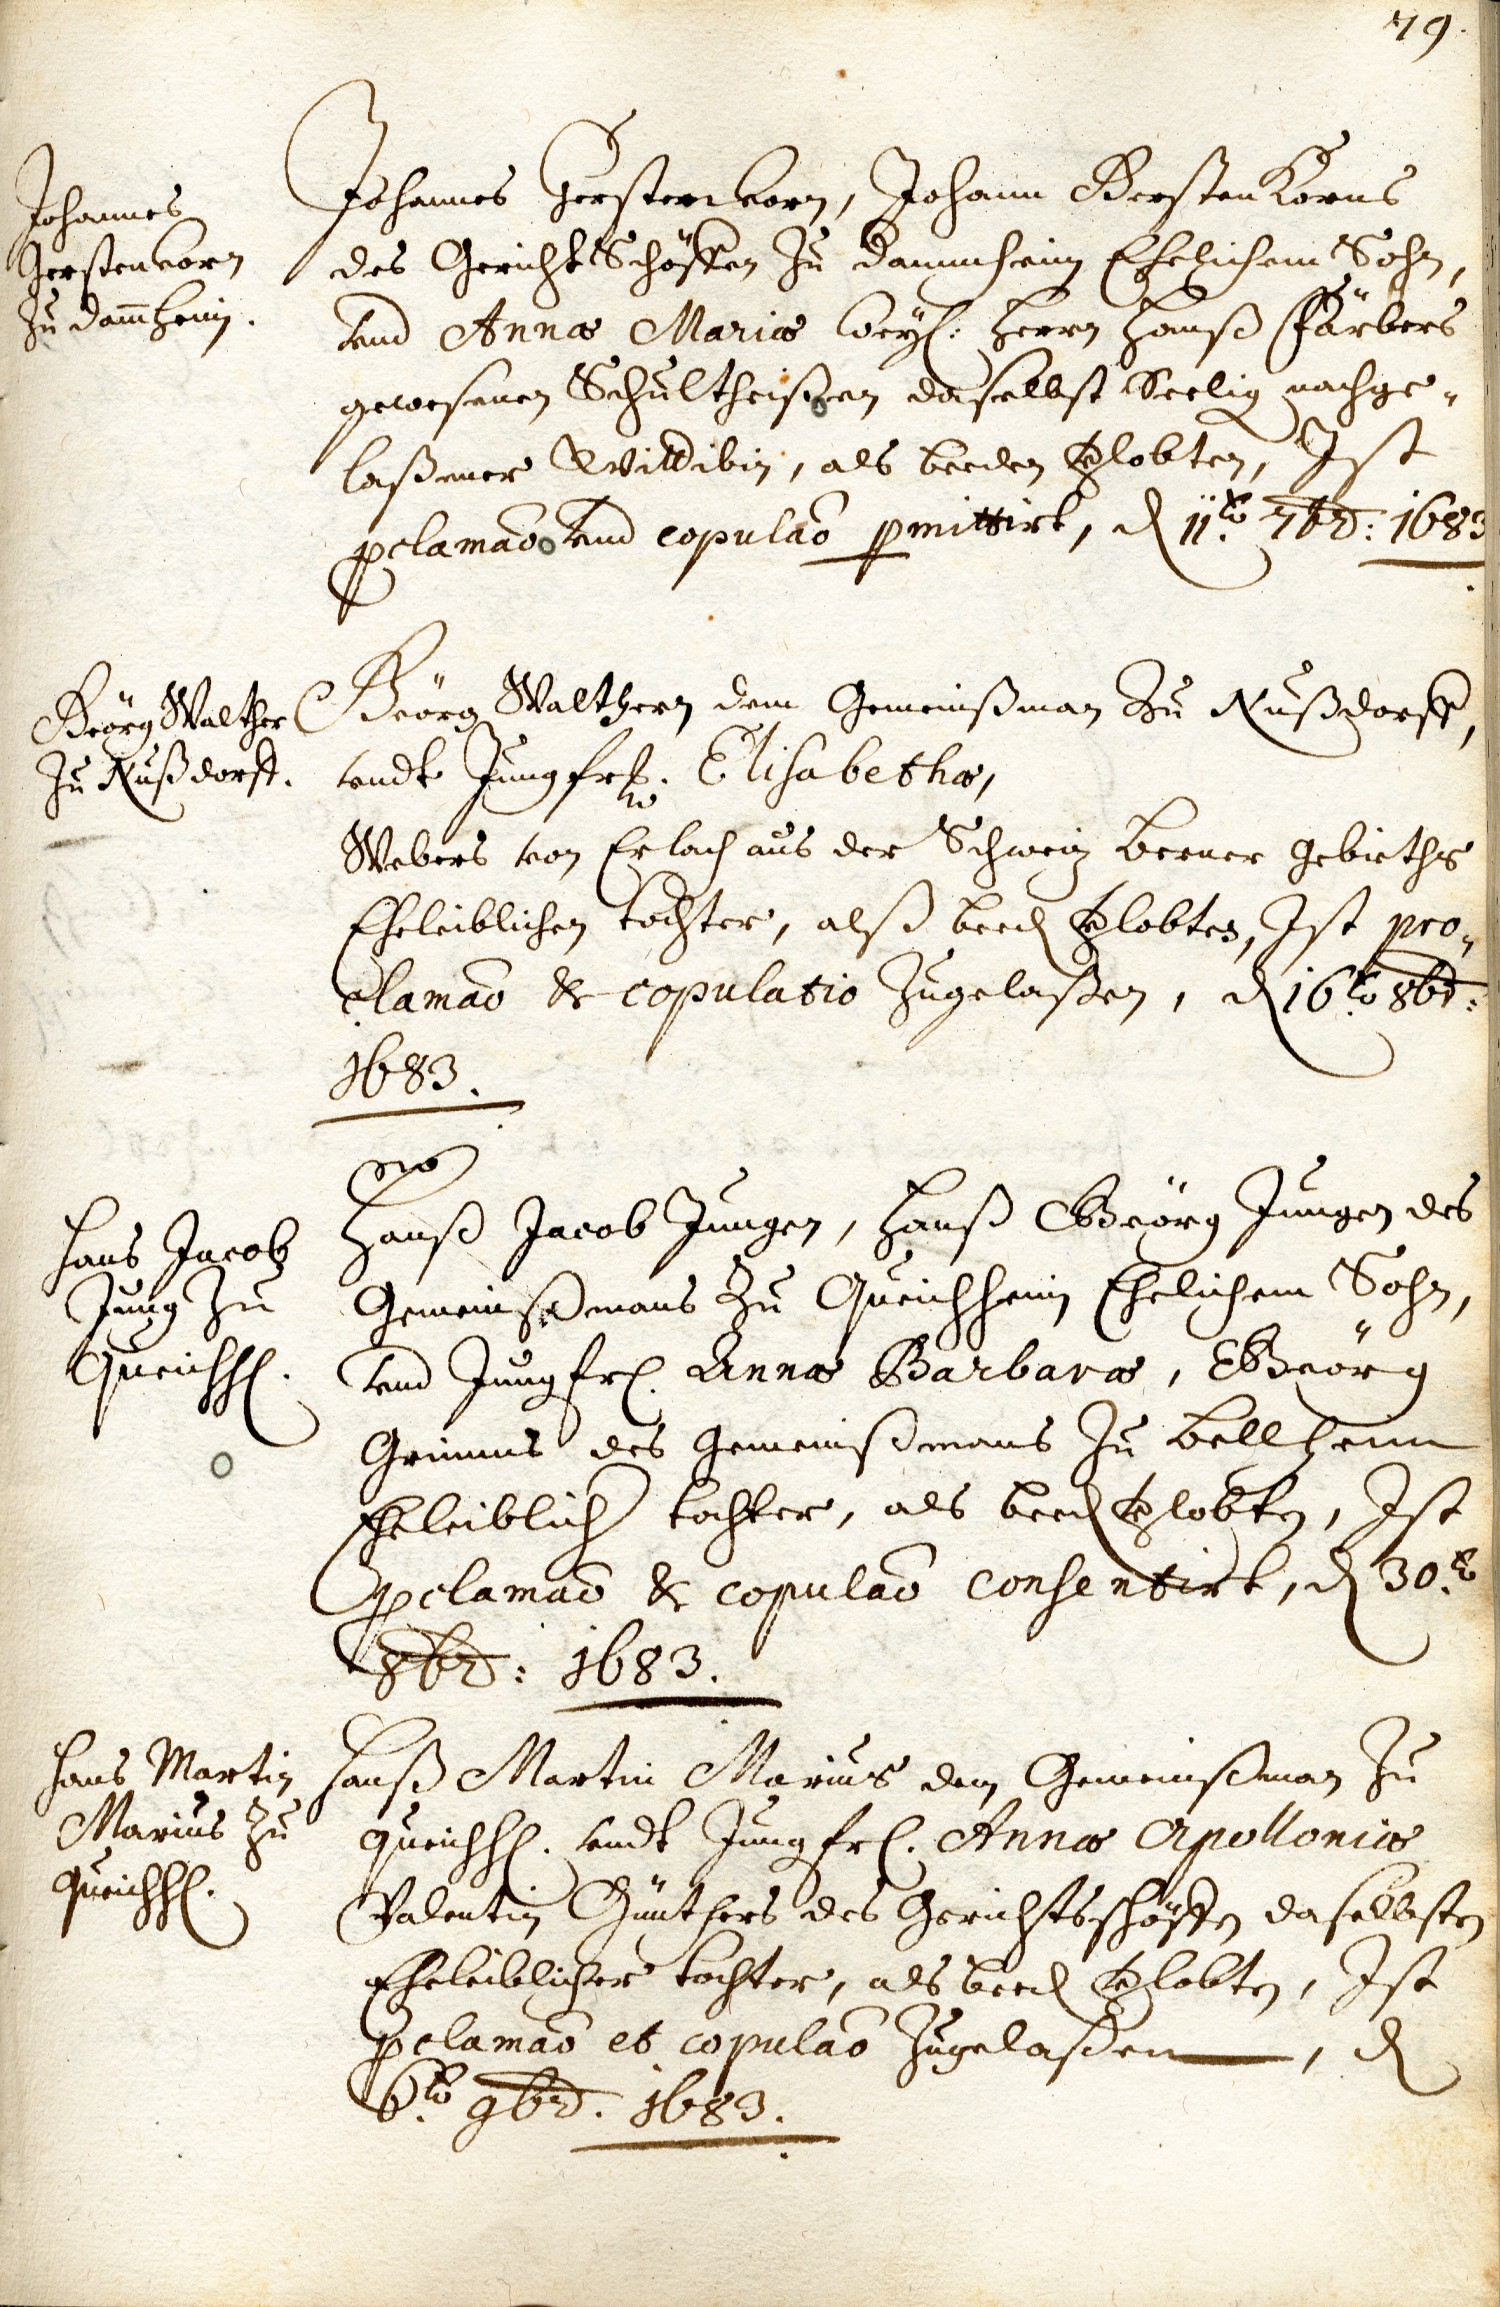 79.
Johannes
Gerstenkorn
zu Dam̄heim.
Johannes Gerstenkorn, Johann Gersten Korns
des Gericht Schöffen zu Dammheim Ehelichem Sohn,
vnd Annæ Mariæ weyl: Herrn Hanß Färbers
gewesenen Schultheißen daselbst Seelig nachge-
laßener Wittibin, als beeden vlobten, Ist
pclamāo vnd copulāo pmittirt, d 11.to 7br: 1683
Geörg Walther
zu Nußdorff.
Geörg Walthern dem Gemeinßman zu Nußdorff,
vndt Jungfrl. Elisabethæ,
Webers von Erlach aus der Schweiz Berner gebieths
Eheleiblichen tochter, alß beed vlobten, Ist pro-
clamāo & copulatio zugelaßen, d 16.to 8br:
1683.
Hans Jacob
Jung zu
Queichh.
Hanß Jacob Jungen, Hanß Geörg Jungen des
Gemeinßmans zu Queichheim Ehelichem Sohn,
vnd Jungfrl. Annæ Barbaræ, Geörg
Grimms des gemeinßmans zu Bellheim
Eheleiblich tochter, als beed vlobten, Ist
pclamāo & copulāo consentirt, d 30.to
8br: 1683.
Hans Martin
Marius zu
Queichh.
Hanß Martin Marius dem Gemeinßman zu
Queichh. vndt Jungfrl. Annæ Apolloniæ
Valentin Günthers des Gerichtsschöffen daselbsten
Eheleiblicher tochter, als beed vlobten, Ist
pclamāo et copulāo zugelaßen, d
6.to 9br. 1683.